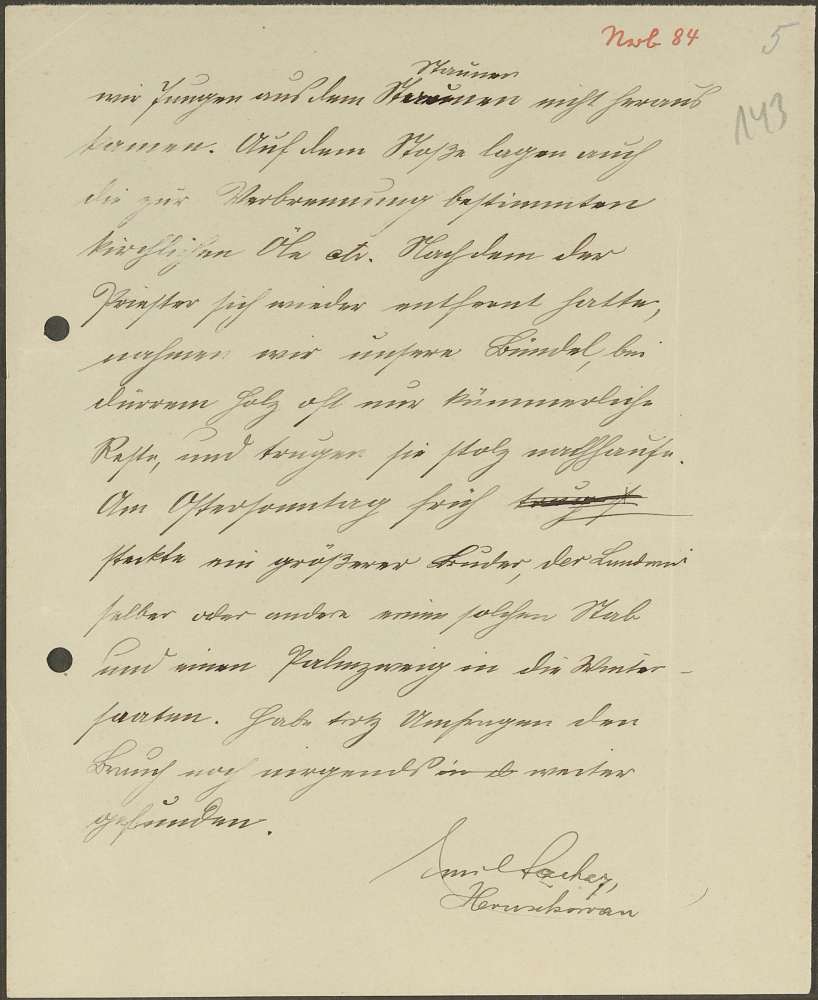 Nrb 84
5
143
Staunen
wir Jungen aus dem Staunen nicht heraus
kamen. Auf dem Stoße lagen auch
die zur Verbrennung bestimmten
kirchlichen Öle etc. Nachdem der
Priester sich wieder entfernt hatte,
nahmen wir unsere Bündel, bei
dürrem Holz oft nur kümmerliche
Reste, und trugen sie stolz nachhause.
Am Ostersonntag früh
steckte ein größerer Bruder, der Landwirt
selber oder andere einen solchen Stab
und einen Palmzweig in die Winter-
saaten. Habe trotz Umfragen den
Brauch noch nirgends weiter
gefunden.
Emil